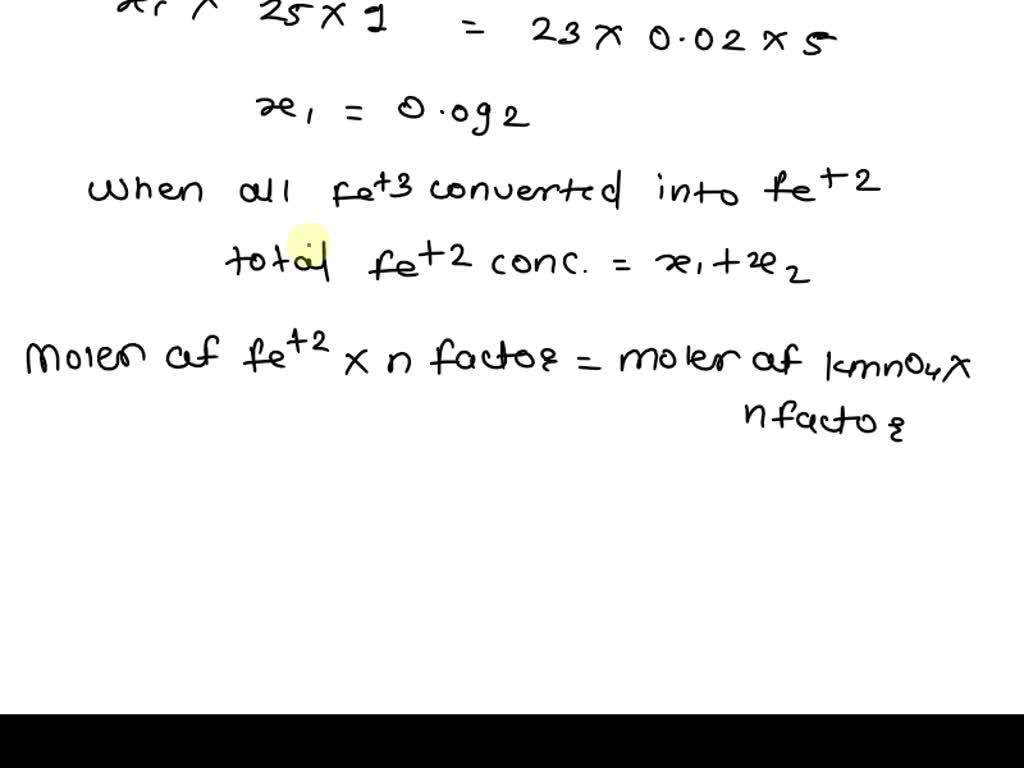 × 25 × 1 = 23 × 0.02 × 5
x₁ = 0.092
when all fe+3 converted into fe+2
total fe+2 conc. = x₁ + x₂
moles of fe+2 × n factor = moles of kmno₄ ×
n factor